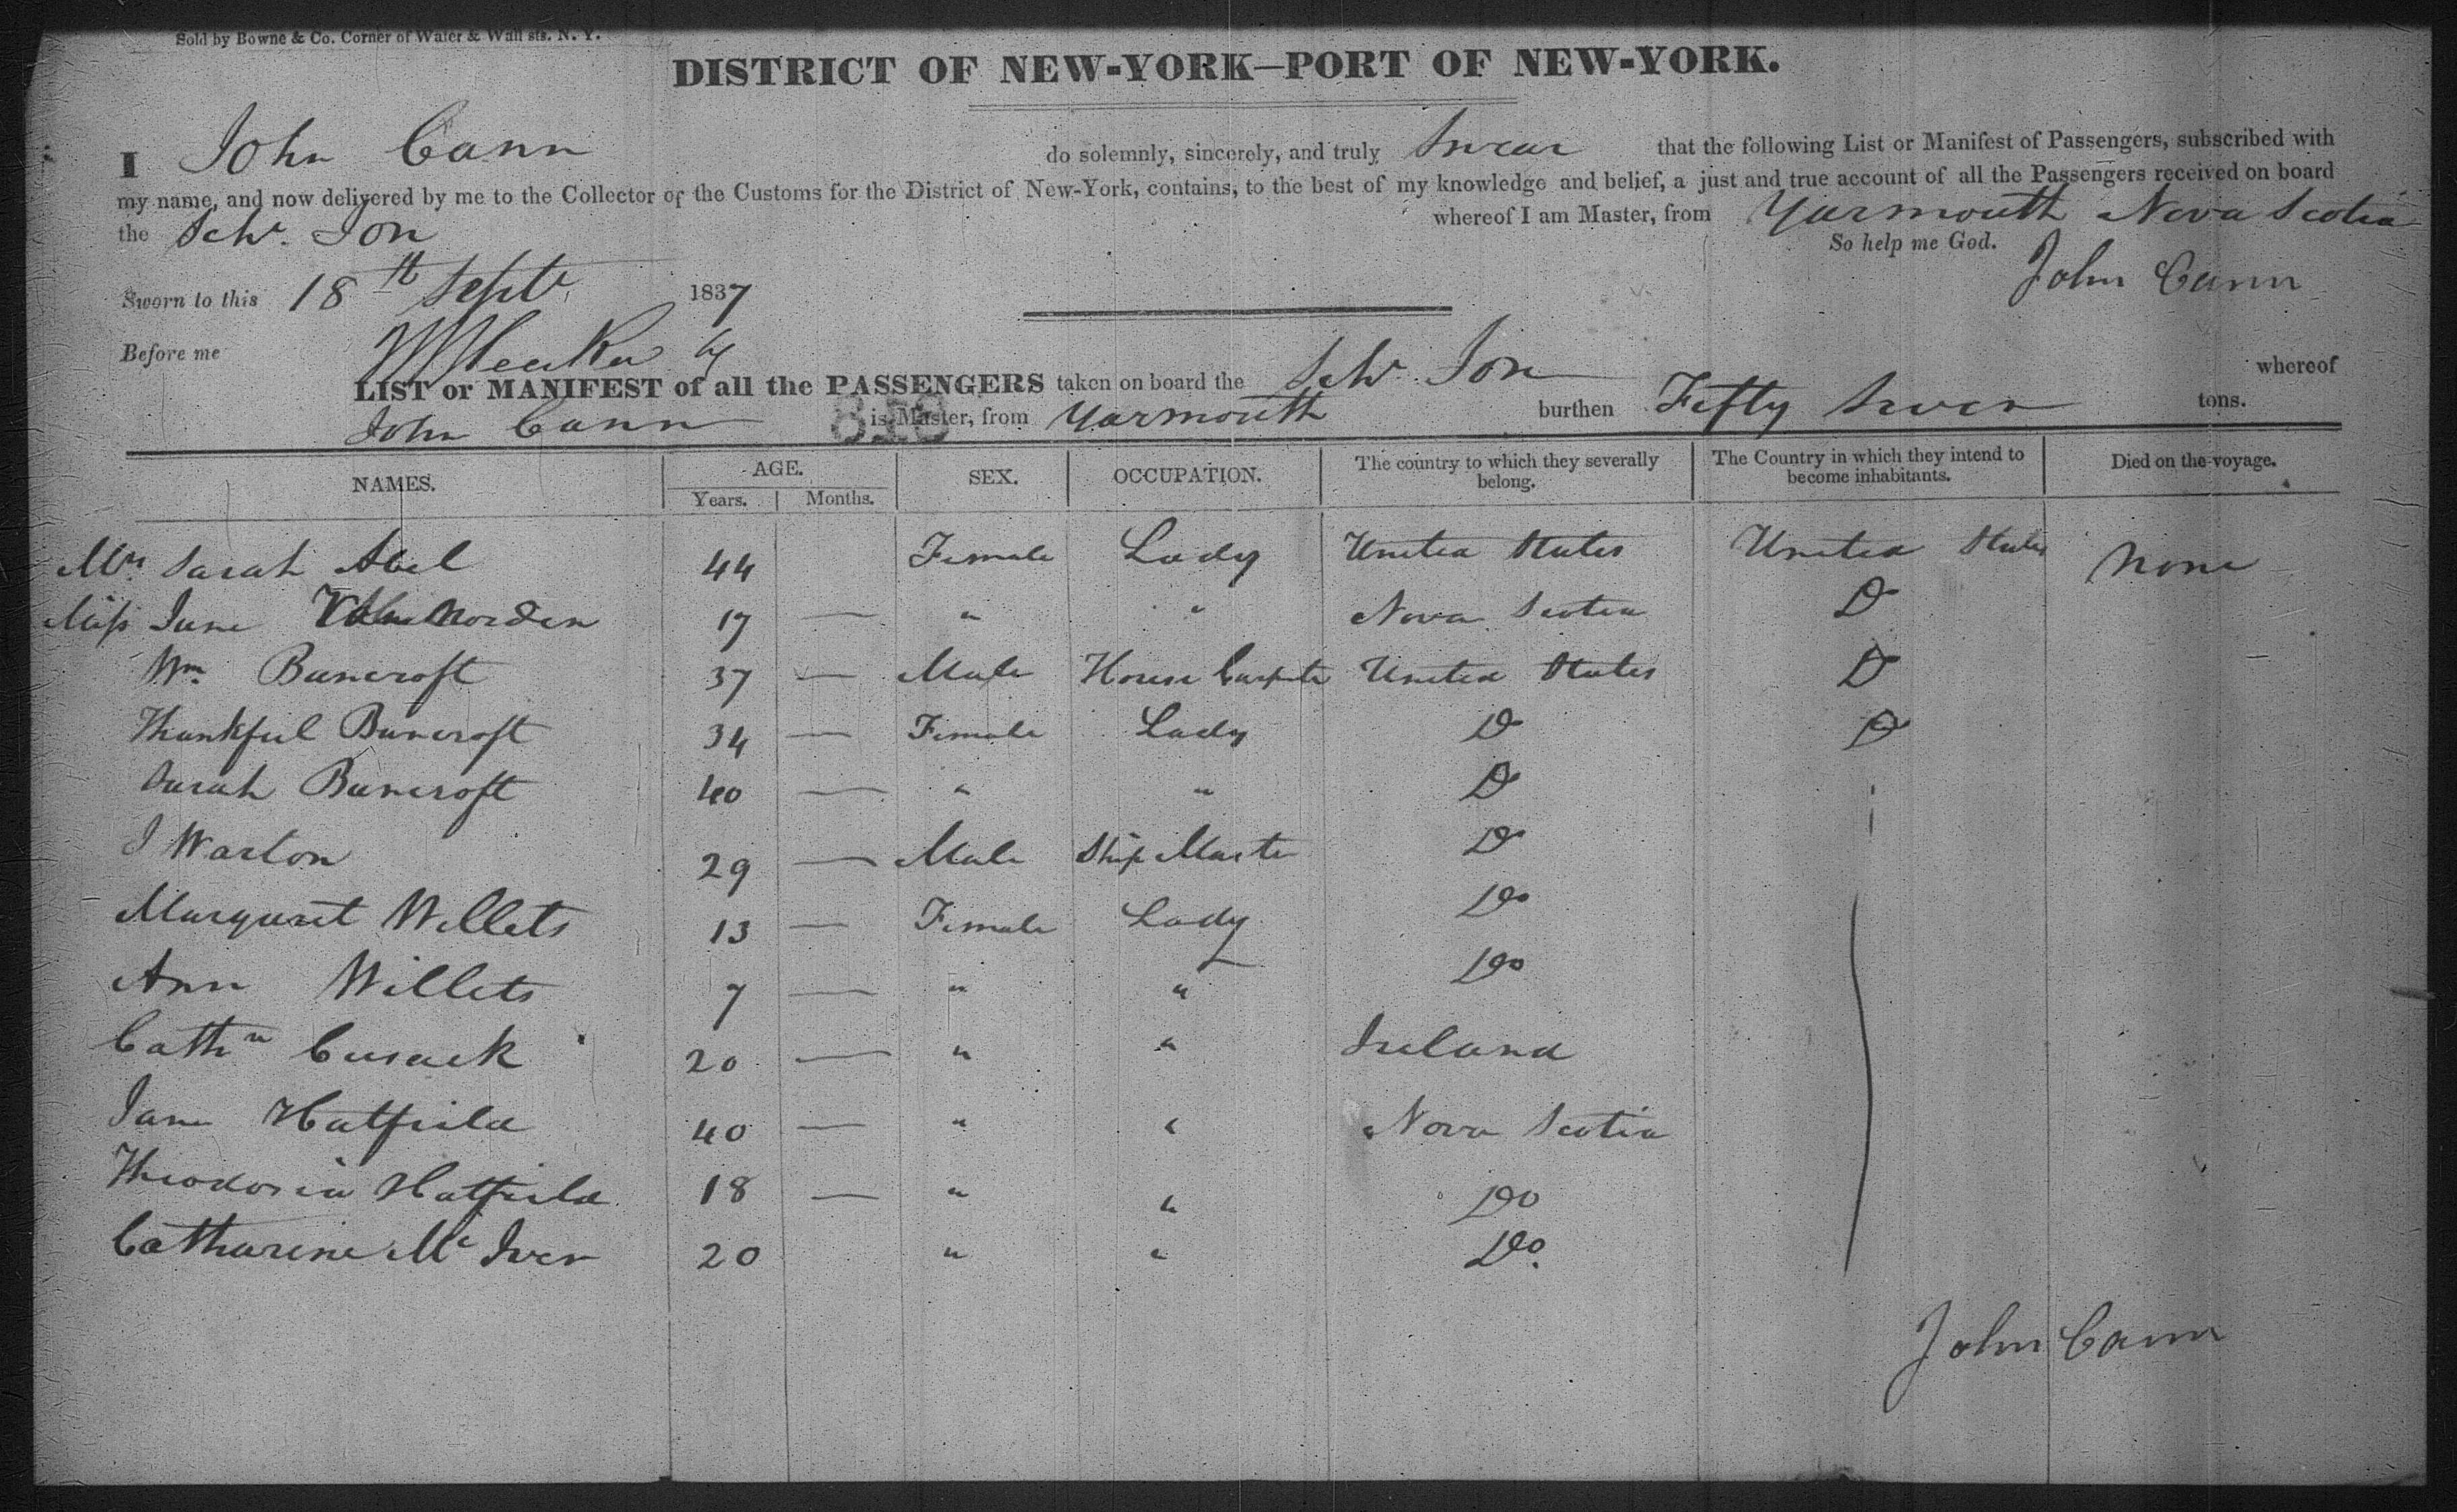 Sold by Bowne & Co. Corner of Water & Wall sts. N. Y.
DISTRICT OF NEW-YORK—PORT OF NEW-YORK.
I John Cann do solemnly, sincerely, and truly Swear that the following List or Manifest of Passengers, subscribed with
my name, and now delivered by me to the Collector of the Customs for the District of New-York, contains, to the best of my knowledge and belief, a just and true account of all the Passengers received on board
the Schr. Ion whereof I am Master, from Yarmouth Nova Scotia
So help me God.
John Cann
Sworn to this 18th Septr, 1837
Before me
LIST or MANIFEST of all the PASSENGERS taken on board the Schr. Ion whereof
John Cann is Master, from Yarmouth burthen Fifty Seven tons.
NAMES. AGE. Years. Months. SEX. OCCUPATION. The country to which they severally belong. The Country in which they intend to become inhabitants. Died on the voyage.
Mrs. Sarah Abel 44 Female Lady United States United States None
Miss Jane Norden 17 — " " Nova Scotia Do
Wm. Bancroft 37 — Male House Carpenter United States Do
Thankful Bancroft 34 — Female Lady Do Do
Sarah Bancroft 40 — " " Do
J Warton 29 — Male Ship Master Do
Margaret Willets 13 — Female Lady Do
Ann Willets 7 — " " Do
Cathn Cusack 20 — " " Ireland
Jane Hatfield 40 — " " Nova Scotia
Theodosia Hatfield 18 — " " Do
Catharine Mc Iver 20 " " Do.
John Cann